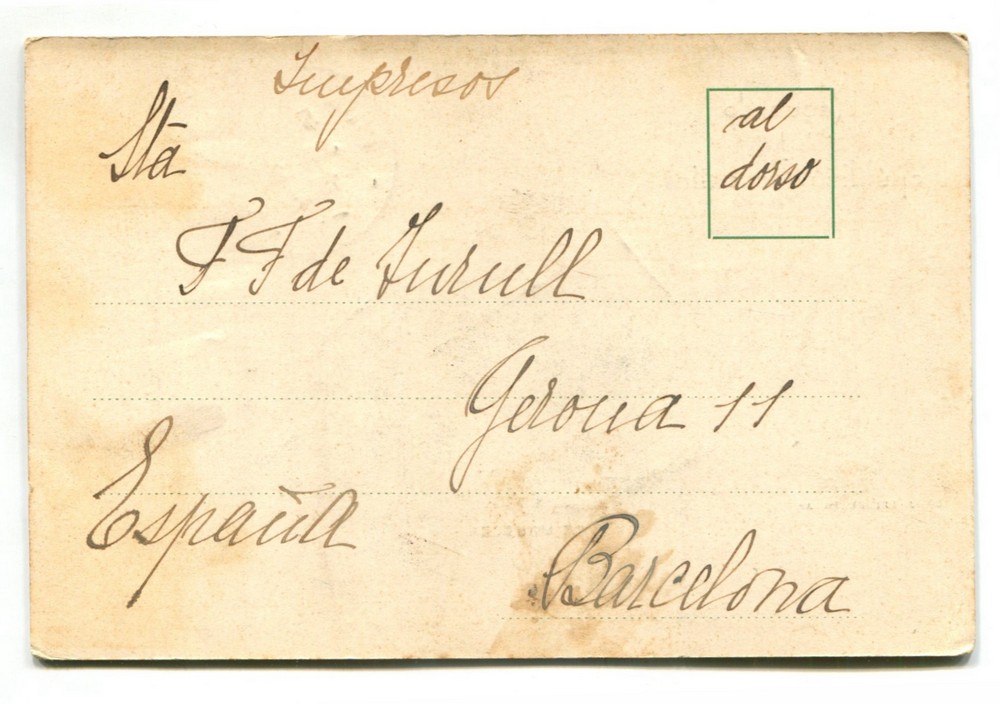 Impresos
al
dorso
Sta
F F de Turull
Gerona 11
España
Barcelona